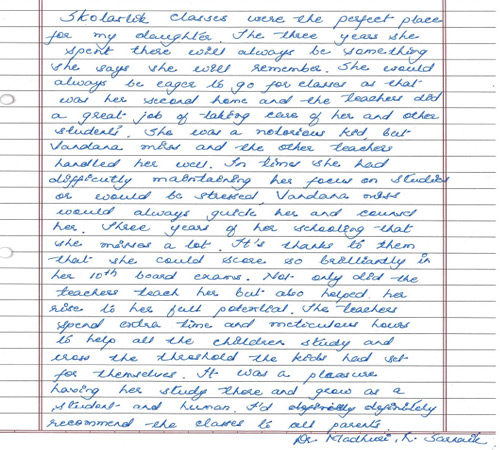 Skolartek classes were the perfect place
for my daughter. The three years she
spent there will always be something
she says she will remember. She would
always be eager to go for classes as that
was her second home and the teachers did
a great job of taking care of her and other
students. She was a notorious kid, but
Vandana miss and the other teachers
handled her well. In times she had
difficulty maintaining her focus on studies
or would be stressed, Vandana miss
would always guide her and counsel
her. Three years of her schooling that
she misses a lot. It's thanks to them
that she could score so brilliantly in
her 10th board exams. Not only did the
teachers teach her but also helped her
rise to her full potential. The teachers
spend extra time and meticulous hours
to help all the children study and
cross the threshold the kids had set
for themselves. It was a pleasure
having her study there and grow as a
student and human. I'd definitely
recommend the classes to all parents.
Dr. Madhuri